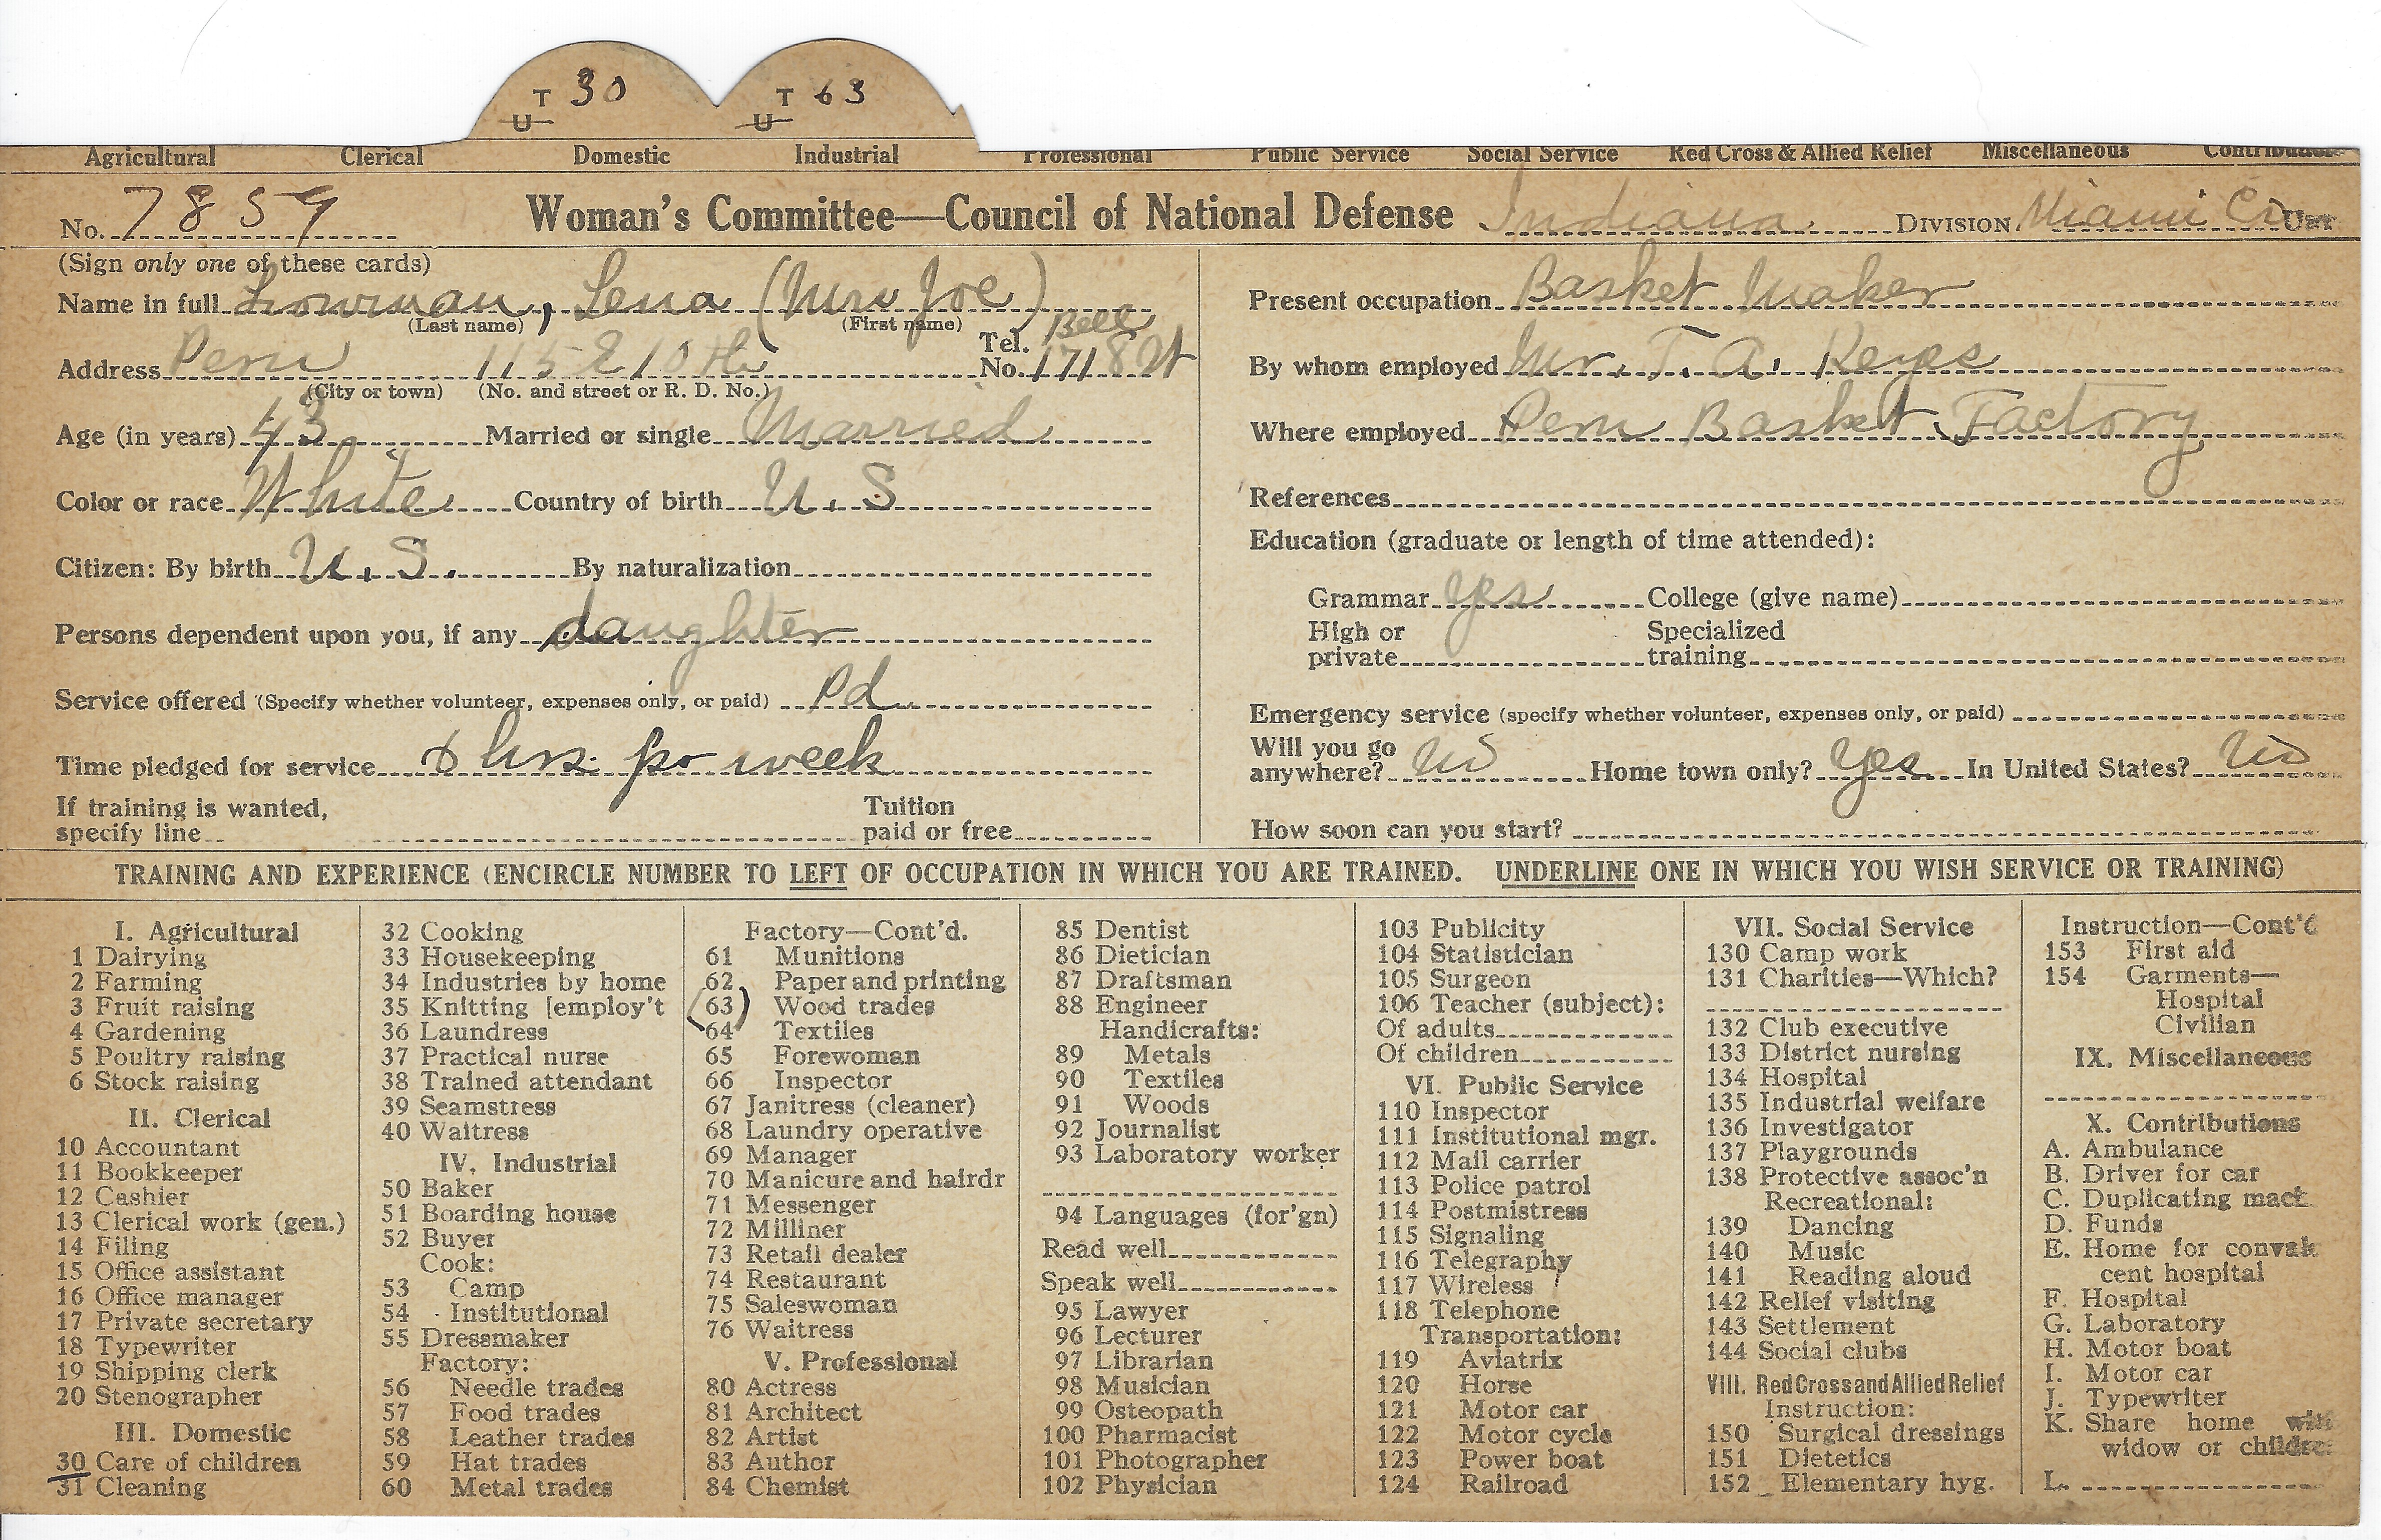 T 30 T 63
U U
Agricultural Clerical Domestic Industrial Professional Public Service Social Service Red Cross & Allied Relief Miscellaneous
No. 7859 Woman's Committee—Council of National Defense Indiana DIVISION Miami Co
(Sign only one of these cards)
Name in full Lowman, Lena (Mrs Joe)
(Last name) (First name)
Address Peru 115 E 10th Tel. No. Bell 1718 W
(City or town) (No. and street or R. D. No.)
Age (in years) 43 Married or single Married
Color or race White Country of birth U.S
Citizen: By birth U.S. By naturalization
Persons dependent upon you, if any daughter
Service offered (Specify whether volunteer, expenses only, or paid) Pd
Time pledged for service hrs. per week
If training is wanted, Tuition
specify line paid or free
Present occupation Basket Maker
By whom employed Mr. T. A. Keyes
Where employed Peru Basket Factory
References
Education (graduate or length of time attended):
Grammar yes College (give name)
High or Specialized
private training
Emergency service (specify whether volunteer, expenses only, or paid)
Will you go
anywhere? No Home town only? Yes In United States? No
How soon can you start?
TRAINING AND EXPERIENCE (ENCIRCLE NUMBER TO LEFT OF OCCUPATION IN WHICH YOU ARE TRAINED. UNDERLINE ONE IN WHICH YOU WISH SERVICE OR TRAINING)
I. Agricultural
1 Dairying
2 Farming
3 Fruit raising
4 Gardening
5 Poultry raising
6 Stock raising
II. Clerical
10 Accountant
11 Bookkeeper
12 Cashier
13 Clerical work (gen.)
14 Filing
15 Office assistant
16 Office manager
17 Private secretary
18 Typewriter
19 Shipping clerk
20 Stenographer
III. Domestic
30 Care of children
31 Cleaning
32 Cooking
33 Housekeeping
34 Industries by home
35 Knitting [employ't
36 Laundress
37 Practical nurse
38 Trained attendant
39 Seamstress
40 Waitress
IV. Industrial
50 Baker
51 Boarding house
52 Buyer
Cook:
53 Camp
54 Institutional
55 Dressmaker
Factory:
56 Needle trades
57 Food trades
58 Leather trades
59 Hat trades
60 Metal trades
Factory—Cont'd.
61 Munitions
62 Paper and printing
63 Wood trades
64 Textiles
65 Forewoman
66 Inspector
67 Janitress (cleaner)
68 Laundry operative
69 Manager
70 Manicure and hairdr
71 Messenger
72 Milliner
73 Retail dealer
74 Restaurant
75 Saleswoman
76 Waitress
V. Professional
80 Actress
81 Architect
82 Artist
83 Author
84 Chemist
85 Dentist
86 Dietician
87 Draftsman
88 Engineer
Handicrafts:
89 Metals
90 Textiles
91 Woods
92 Journalist
93 Laboratory worker
94 Languages (for'gn)
Read well
Speak well
95 Lawyer
96 Lecturer
97 Librarian
98 Musician
99 Osteopath
100 Pharmacist
101 Photographer
102 Physician
103 Publicity
104 Statistician
105 Surgeon
106 Teacher (subject):
Of adults
Of children
VI. Public Service
110 Inspector
111 Institutional mgr.
112 Mail carrier
113 Police patrol
114 Postmistress
115 Signaling
116 Telegraphy
117 Wireless
118 Telephone
Transportation:
119 Aviatrix
120 Horse
121 Motor car
122 Motor cycle
123 Power boat
124 Railroad
VII. Social Service
130 Camp work
131 Charities—Which?
132 Club executive
133 District nursing
134 Hospital
135 Industrial welfare
136 Investigator
137 Playgrounds
138 Protective assoc'n
Recreational:
139 Dancing
140 Music
141 Reading aloud
142 Relief visiting
143 Settlement
144 Social clubs
VIII. Red Cross and Allied Relief
Instruction:
150 Surgical dressings
151 Dietetics
152 Elementary hyg.
Instruction—Cont'd
153 First aid
154 Garments—
Hospital
Civilian
IX. Miscellaneous
X. Contributions
A. Ambulance
B. Driver for car
C. Duplicating mach
D. Funds
E. Home for convales
cent hospital
F. Hospital
G. Laboratory
H. Motor boat
I. Motor car
J. Typewriter
K. Share home with
widow or children
L.